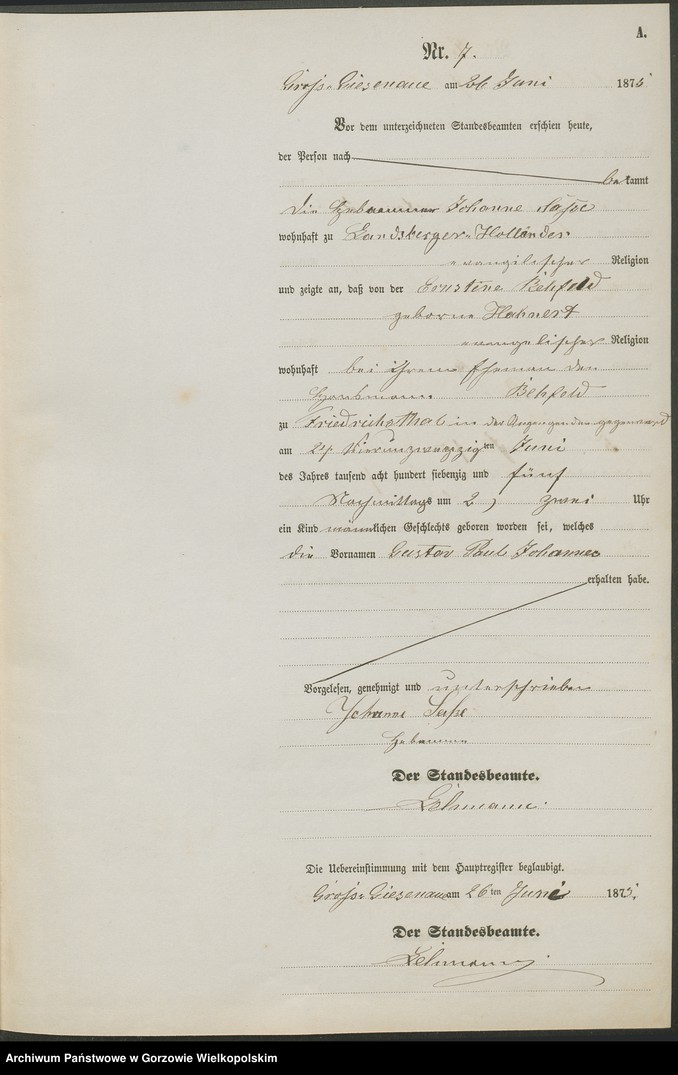 A.
Nr. 7.
Gross-Giesenaue am 26 Juni 1875
Vor dem unterzeichneten Standesbeamten erschien heute,
der Person nach
bekannt
die Hebamme Johanne Sasse
wohnhaft zu Landsberger-Holländer
evangelischer Religion
und zeigte an, daß von der Ernstine Rehfeld
geborne Hahnert
evangelischer Religion
wohnhaft bei ihrem Eheman den
Rehfeld
zu Friedrichsthal in gegenward
am 24 Vierunzwanzigten Juni
des Jahres tausend acht hundert siebenzig und fünf
Nachmittags um 2, zwei Uhr
ein Kind männlichen Geschlechts geboren worden sei, welches
die Vornamen Gustav Paul Johannes
erhalten habe.
Vorgelesen, genehmigt und unterschrieben
Johanne Sasse
Hebamme
Der Standesbeamte.
Lehmann
Die Uebereinstimmung mit dem Hauptregister beglaubigt.
Gross-Giesenaue am 26ten Juni 1875.
Der Standesbeamte.
Lehmann
Archiwum Państwowe w Gorzowie Wielkopolskim